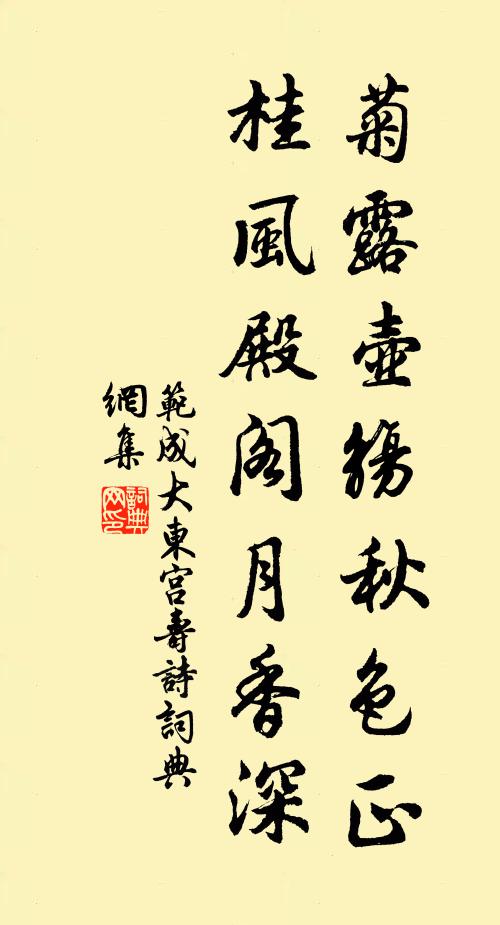 菊露壺觴秋色正
桂風殿閣月香深
範成大東宮壽詩詞典
網集
詞典
网印